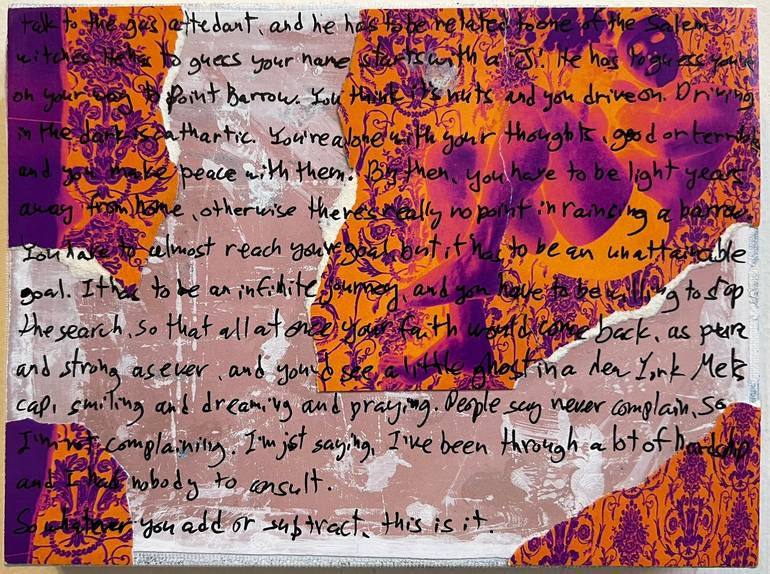 talk to the gas attedant, and he has to be related to one of the Salem
witches. He has to guess your name starts with a "J". He has to guess you're
on your way to Point Barrow. You think it's nuts and you drive on. Driving
in the dark is cathartic. You're alone with your thoughts, good or terrible,
and you make peace with them. But then, you have to be light years
away from home, otherwise there's really no point in rainsing a barrow.
You have to almost reach youre goal but it has to be an unattainable
goal. It has to be an infinite journey, and you have to be willing to stop
the search, so that all at once your faith would come back, as pure
and strong as ever, and you'd see a little ghost in a New York Mets
cap, smiling and dreaming and praying. People say never complain, so
I'm not complaining. I'm jst saying, I've been through a lot of hardship
and I had nobody to consult.
So whatever you add or subtract, this is it.